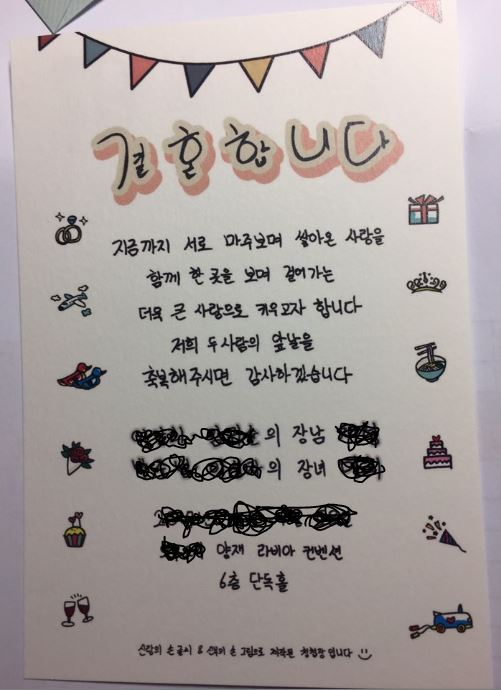 결혼합니다
지금까지 서로 마주보며 쌓아온 사랑을
함께 한 곳을 보며 걸어가는
더욱 큰 사랑으로 키우고자 합니다
저희 두사람의 앞날을
축복해주시면 감사하겠습니다
의 장남
의 장녀
양재 라비아 컨벤션
6층 단독홀
신랑의 손글씨 & 신부의 손그림으로 제작된 청첩장입니다 :)